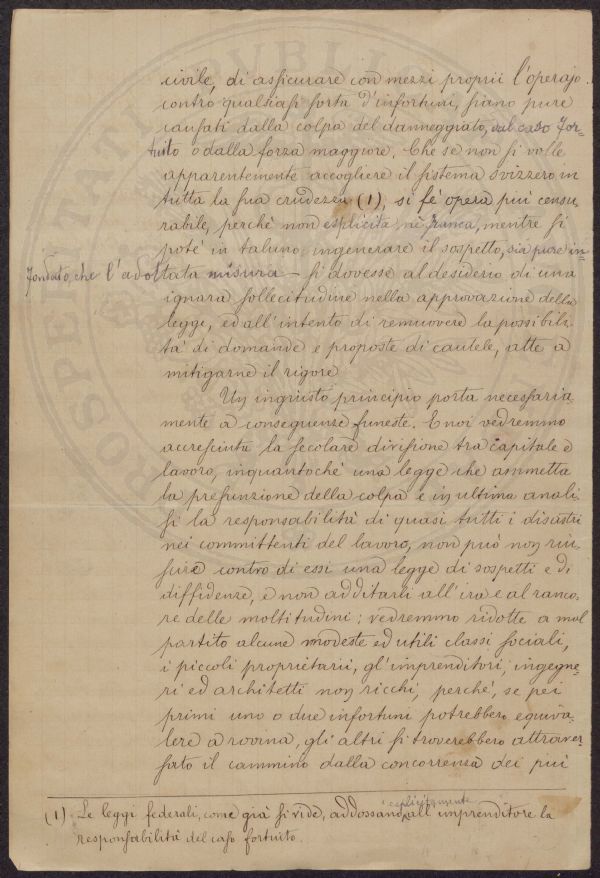 civile, di assicurare con mezzi proprii l'operajo
contro qualsiasi sorta d'infortuni, siano pure
causati dalla colpa del danneggiato, dal caso for-
tuito o dalla forza maggiore. Che se non si volle
apparentemente accogliere il sistema svizzero in
tutta la sua crudezza (1), si fè opera più censu-
rabile, perchè non esplicita, nè franca, mentre si
potè in taluno ingenerare il sospetto, sia pure in-
fondato, che l'adottata misura – si dovesse al desiderio di una
ignara sollecitudine nella approvazione della
legge, ed all'intento di remuovere la possibili-
tà di domande e proposte di cautele, atte a
mitigarne il rigore
Un ingiusto principio porta necessaria-
mente a conseguenze funeste. E noi vedremmo
accresciuta la secolare divisione tra capitale e
lavoro, inquantochè una legge che ammetta
la presunzione della colpa e in ultima anali-
si la responsabilità di quasi tutti i disastri
nei committenti del lavoro, non può non riu-
scire contro di essi una legge di sospetti e di
diffidenze, e non additarli all'ira e al ranco-
re delle moltitudini; vedremmo ridotte a mal
partito alcune modeste ed utili classi sociali,
i piccoli proprietarii, gl'imprenditori, ingegne-
ri ed architetti non ricchi, perchè, se pei
primi uno o due infortuni potrebbero equiva-
lere a rovina, gli altri si troverebbero attraver-
sato il cammino dalla concorrenza dei più
(1) Le leggi federali, come già si vide, addossano esplicitamente all'imprenditore la
responsabilità del caso fortuito.
OSPEDALI
PUBLIC